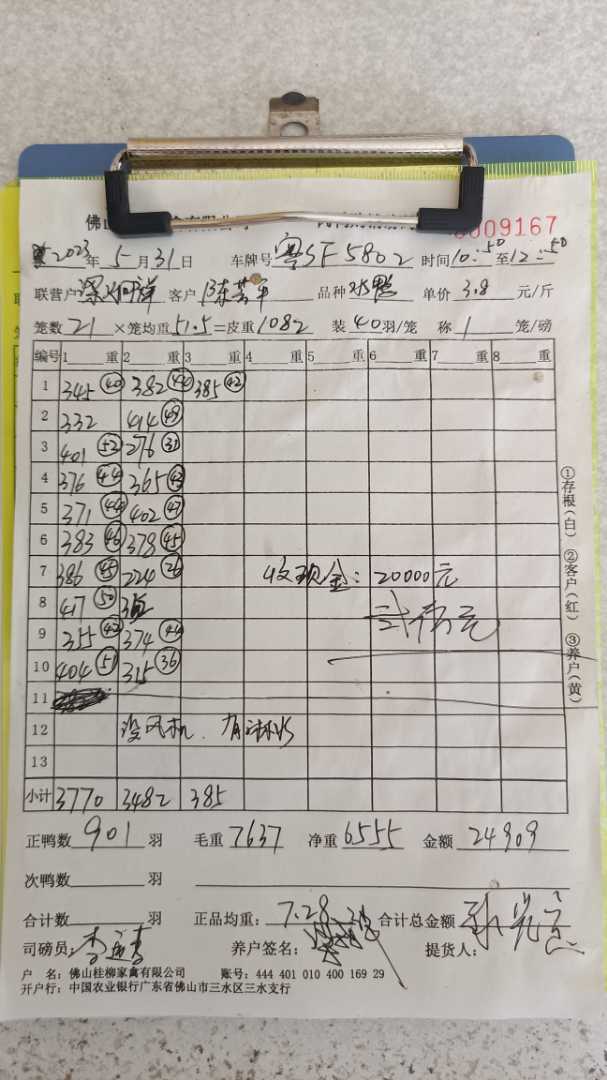 佛山
0009167
2023年 5月31日 车牌号 粤SF5802 时间10:50至12:50
联营户 客户 陈 品种 水鸭 单价 3.8 元/斤
笼数 21 ×笼均重 51.5 =皮重 1082 装 40 羽/笼 称 1 笼/磅
编号 1 重 2 重 3 重 4 重 5 重 6 重 7 重 8 重
1 345 40 382 385 42
2 332 414 49
3 401 52 276 31
4 376 44 365
5 371 44 402 47
6 383 46 378 45
7 386 45 224 26 收现金:20000元
8 417 50 贰万元
9 355 42 374 44
10 404 51 315 36
11
12 没风机.有淋水
13
小计 3770 3482 385
正鸭数 901 羽 毛重 7637 净重 6555 金额 24909
次鸭数 羽
合计数 羽 正品均重: 7.28 合计总金额
司磅员: 养户签名: 提货人:
户 名:佛山桂柳家禽有限公司 账号:444 401 010 400 169 29
开户行:中国农业银行广东省佛山市三水区三水支行
①存根(白) ②客户(红) ③养户(黄)